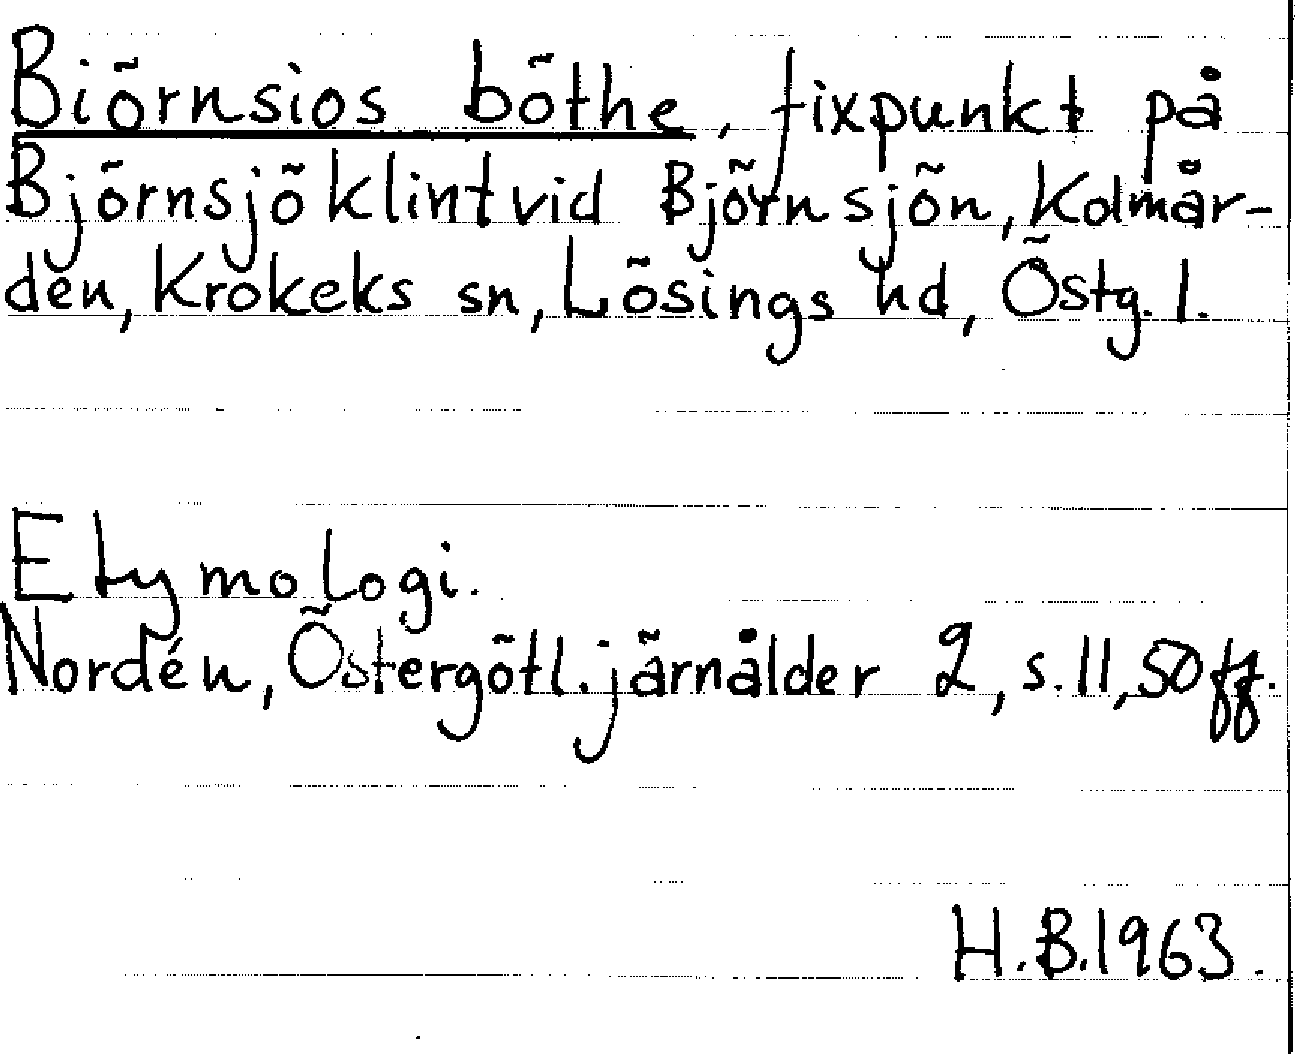 Biörnsios böthe, fixpunkt på
Björnsjöklint vid Björnsjön, Kolmår-
den, Krokeks sn, Lösings hd, Östg. l.
Etymologi.
Nordén, Östergötl. järnålder 2, s. 11, 50 ff.
H.B. 1963.